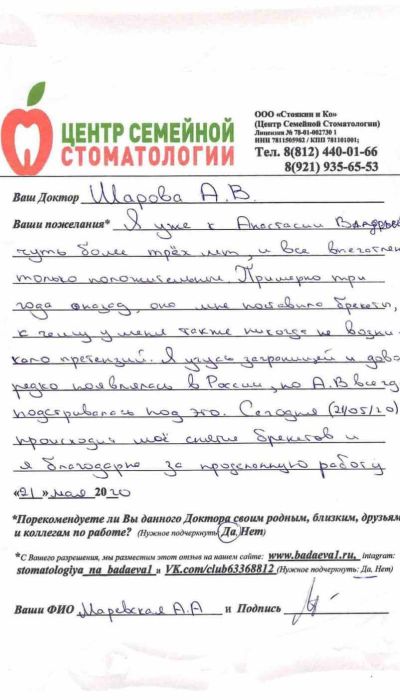 ЦЕНТР СЕМЕЙНОЙ
СТОМАТОЛОГИИ
ООО «Стоякин и Ко»
(Центр Семейной Стоматологии)
Лицензия № 78-01-002730 1
ИНН 7811505982 / КПП 781101001;
Тел. 8(812) 440-01-66
8(921) 935-65-53
Ваш Доктор Шарова А.В.
Ваши пожелания* Я уже к Анастасии
чуть более трёх лет, и все впечатлен
только положительные. Примерно три
года назад, она мне поставила брекеты,
к чему у меня также никогда не возни-
кало претензий. Я учусь заграницей и дово
редко появлялась в России, но А.В всегд
подстривалась под это. Сегодня (21/05/20)
происходил моё снятие брекетов и
я благодарна за проделанную работу
«21» мая 2020
*Порекомендуете ли Вы данного Доктора своим родным, близким, друзьям
и коллегам по работе? (Нужное подчеркнуть: Да, Нет)
*С Вашего разрешения, мы разместим этот отзыв на нашем сайте: www.badaeva1.ru, intagram:
stomatologiya_na_badaeva1 и VK.com/club63368812 (Нужное подчеркнуть: Да, Нет)
Ваши ФИО Маревская А.А и Подпись